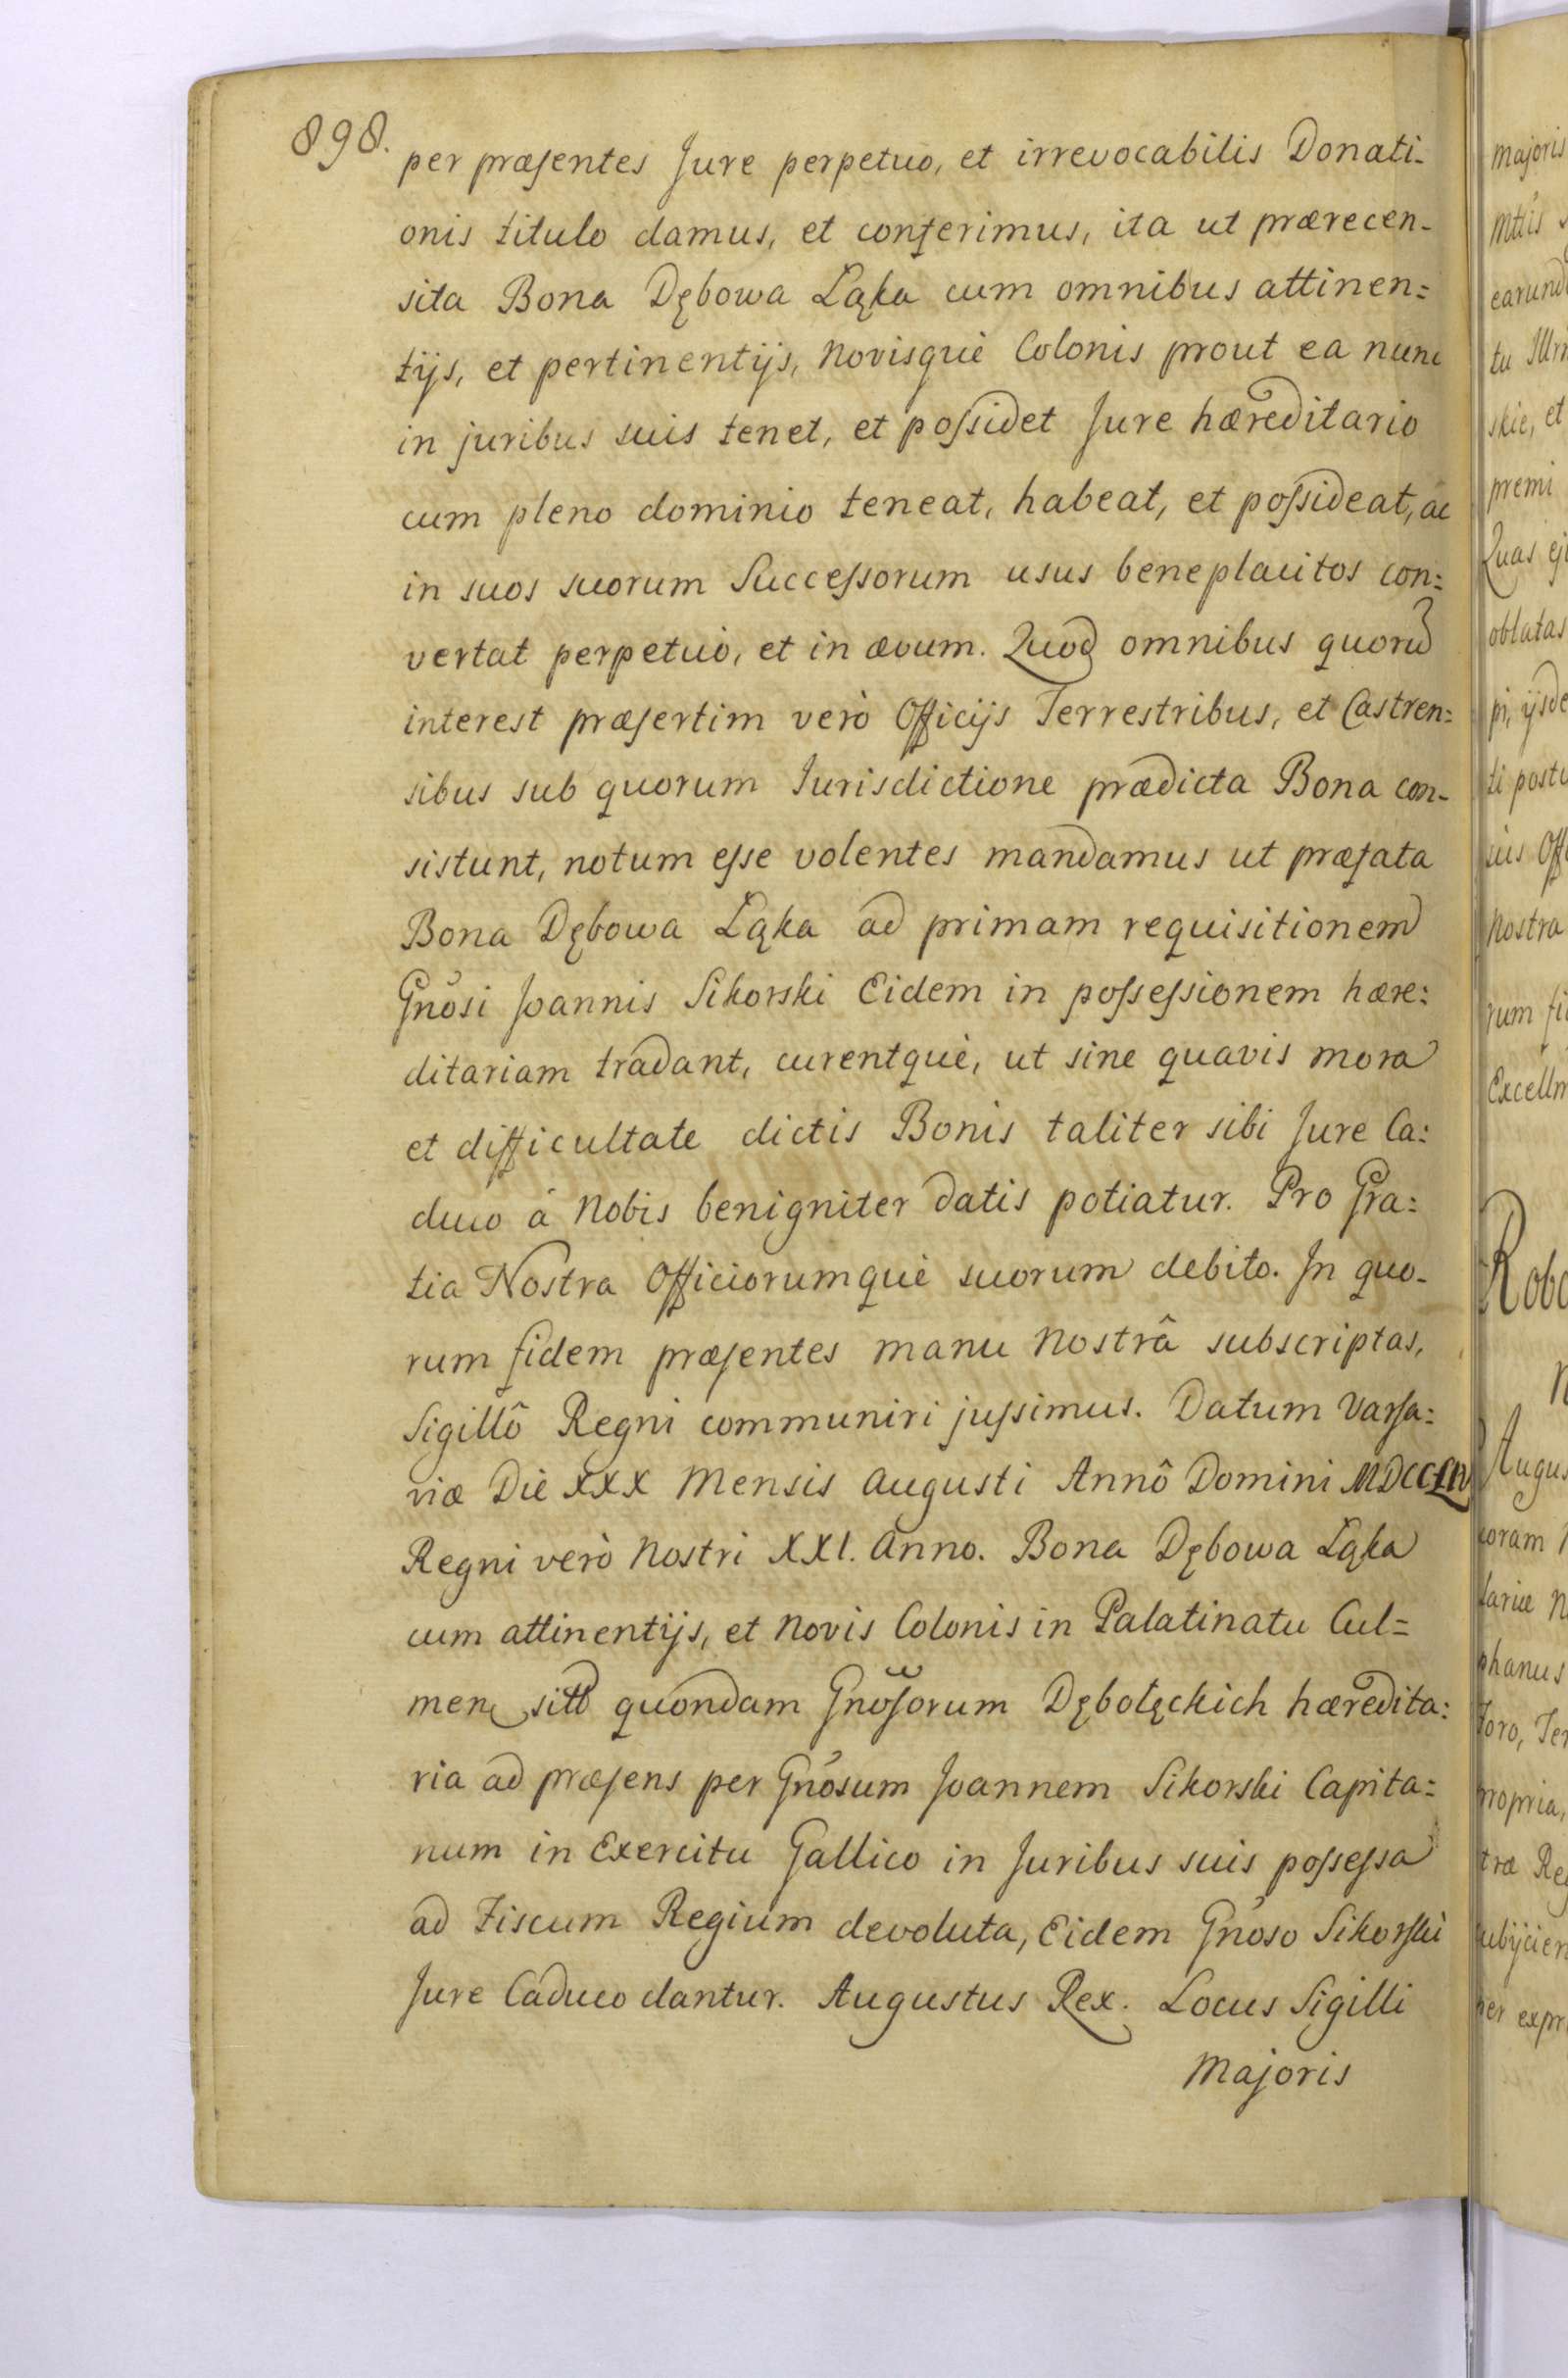 898.
per præsentes Jure perpetuo, et irrevocabilis Donati-
onis titulo damus, et conferimus, ita ut prærecen-
sita Bona Dębowa Łąka cum omnibus attinen=
tijs, et pertinentijs, Novisquè Colonis prout ea nunc
in juribus suis tenet, et possidet Jure hæreditario
cum pleno dominio teneat, habeat, et possideat, ac
in suos suorum Successorum usus beneplacitos con=
vertat perpetuò, et in ævum. Quod omnibus quorũ
interest præsertim verò Officijs Terrestribus, et Castren=
sibus sub quorum Jurisdictione prædicta Bona con-
sistunt, notum esse volentes mandamus ut præfata
Bona Dębowa Łąka ad primam requisitionem
Gnosi Joannis Sikorski Eidem in possessionem hære:
ditariam tradant, curentquè, ut sine quavis mora
et difficultate dictis Bonis taliter sibi Jure Ca:
duco á Nobis benigniter datis potiatur. Pro Gra:
tia Nostra Officiorumquè suorum debito. In quo-
rum fidem præsentes manu Nostrâ subscriptas,
Sigillô Regni communiri jussimus. Datum Varsa:
viæ Die XXX Mensis Augusti Annô Domini MDCCLIV
Regni verò Nostri XXI. Anno. Bona Dębowa Łąka
cum attinentijs, et Novis Colonis in Palatinatu Cul=
men sita quondam Gnosorum Dębołęckich hæredita:
ria ad præsens per Gnosum Joannem Sikorski Capita=
num in Exercitu Gallico in Juribus suis possessa
ad Fiscum Regium devoluta, Eidem Gnoso Sikorski
Jure Caduco dantur. Augustus Rex. Locus Sigilli
Majoris
majoris
earund
tu Illm
skie, et
premi
Quas ej
oblatas
pi, ijsde
ti postu
ius Offi
Nostra
rum fi
Excellm
Robo
Augus
coram
phanus
foro, Ter
propria,
træ Reg
per expr